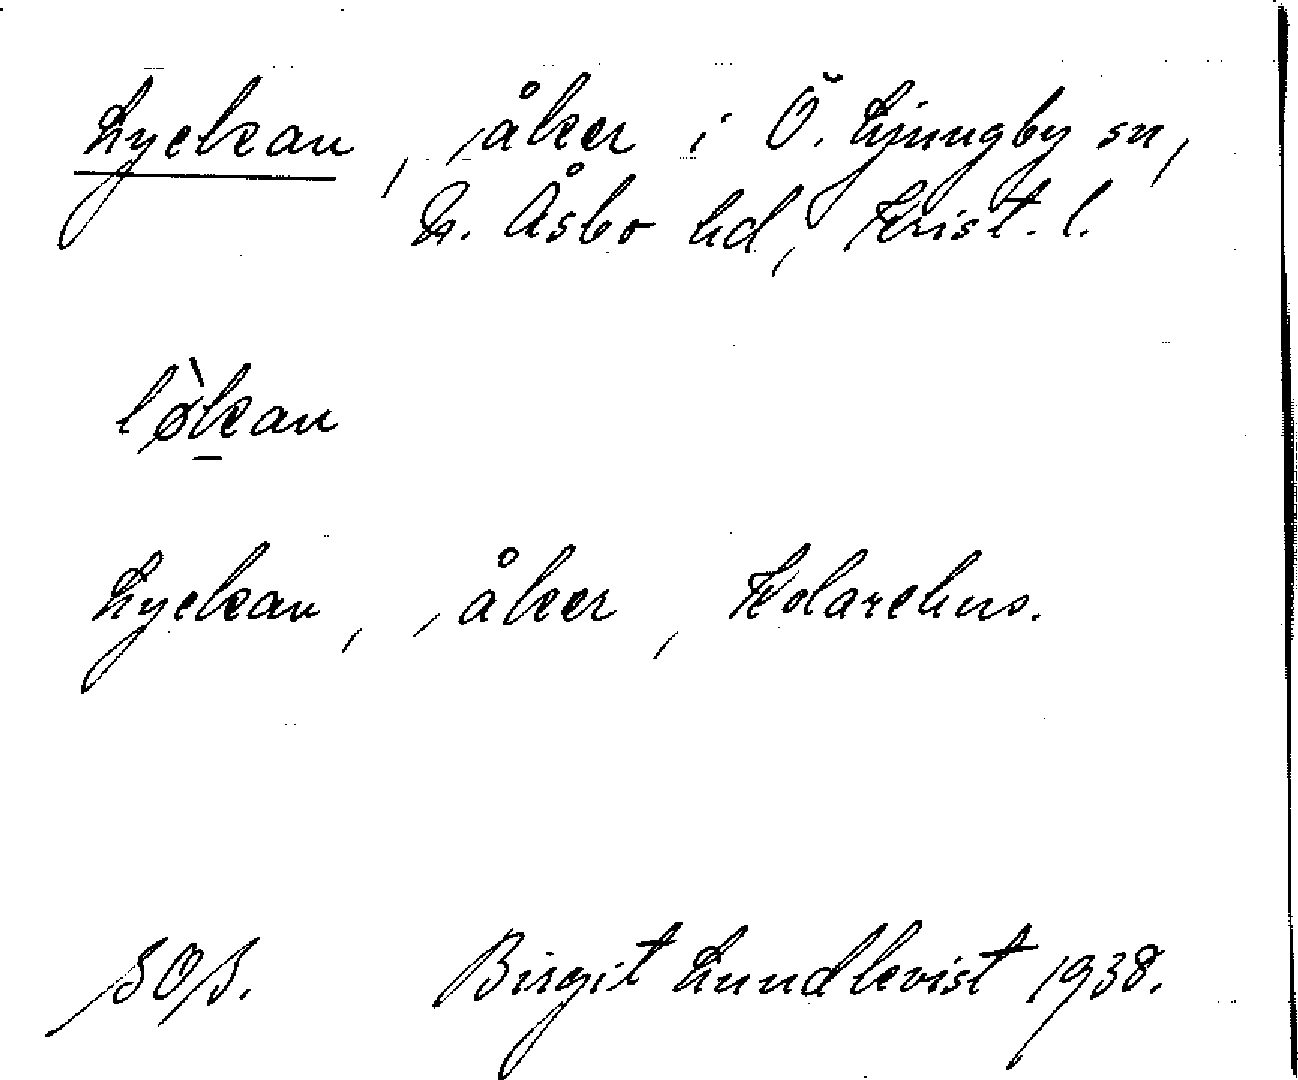 Lyckan, åker i Ö. Ljungby sn,
N. Åsbo hd, Krist. l.
lø̀k̲an
Lyckan, åker, Kolarehus.
SOS. Birgit Lundkvist 1938.